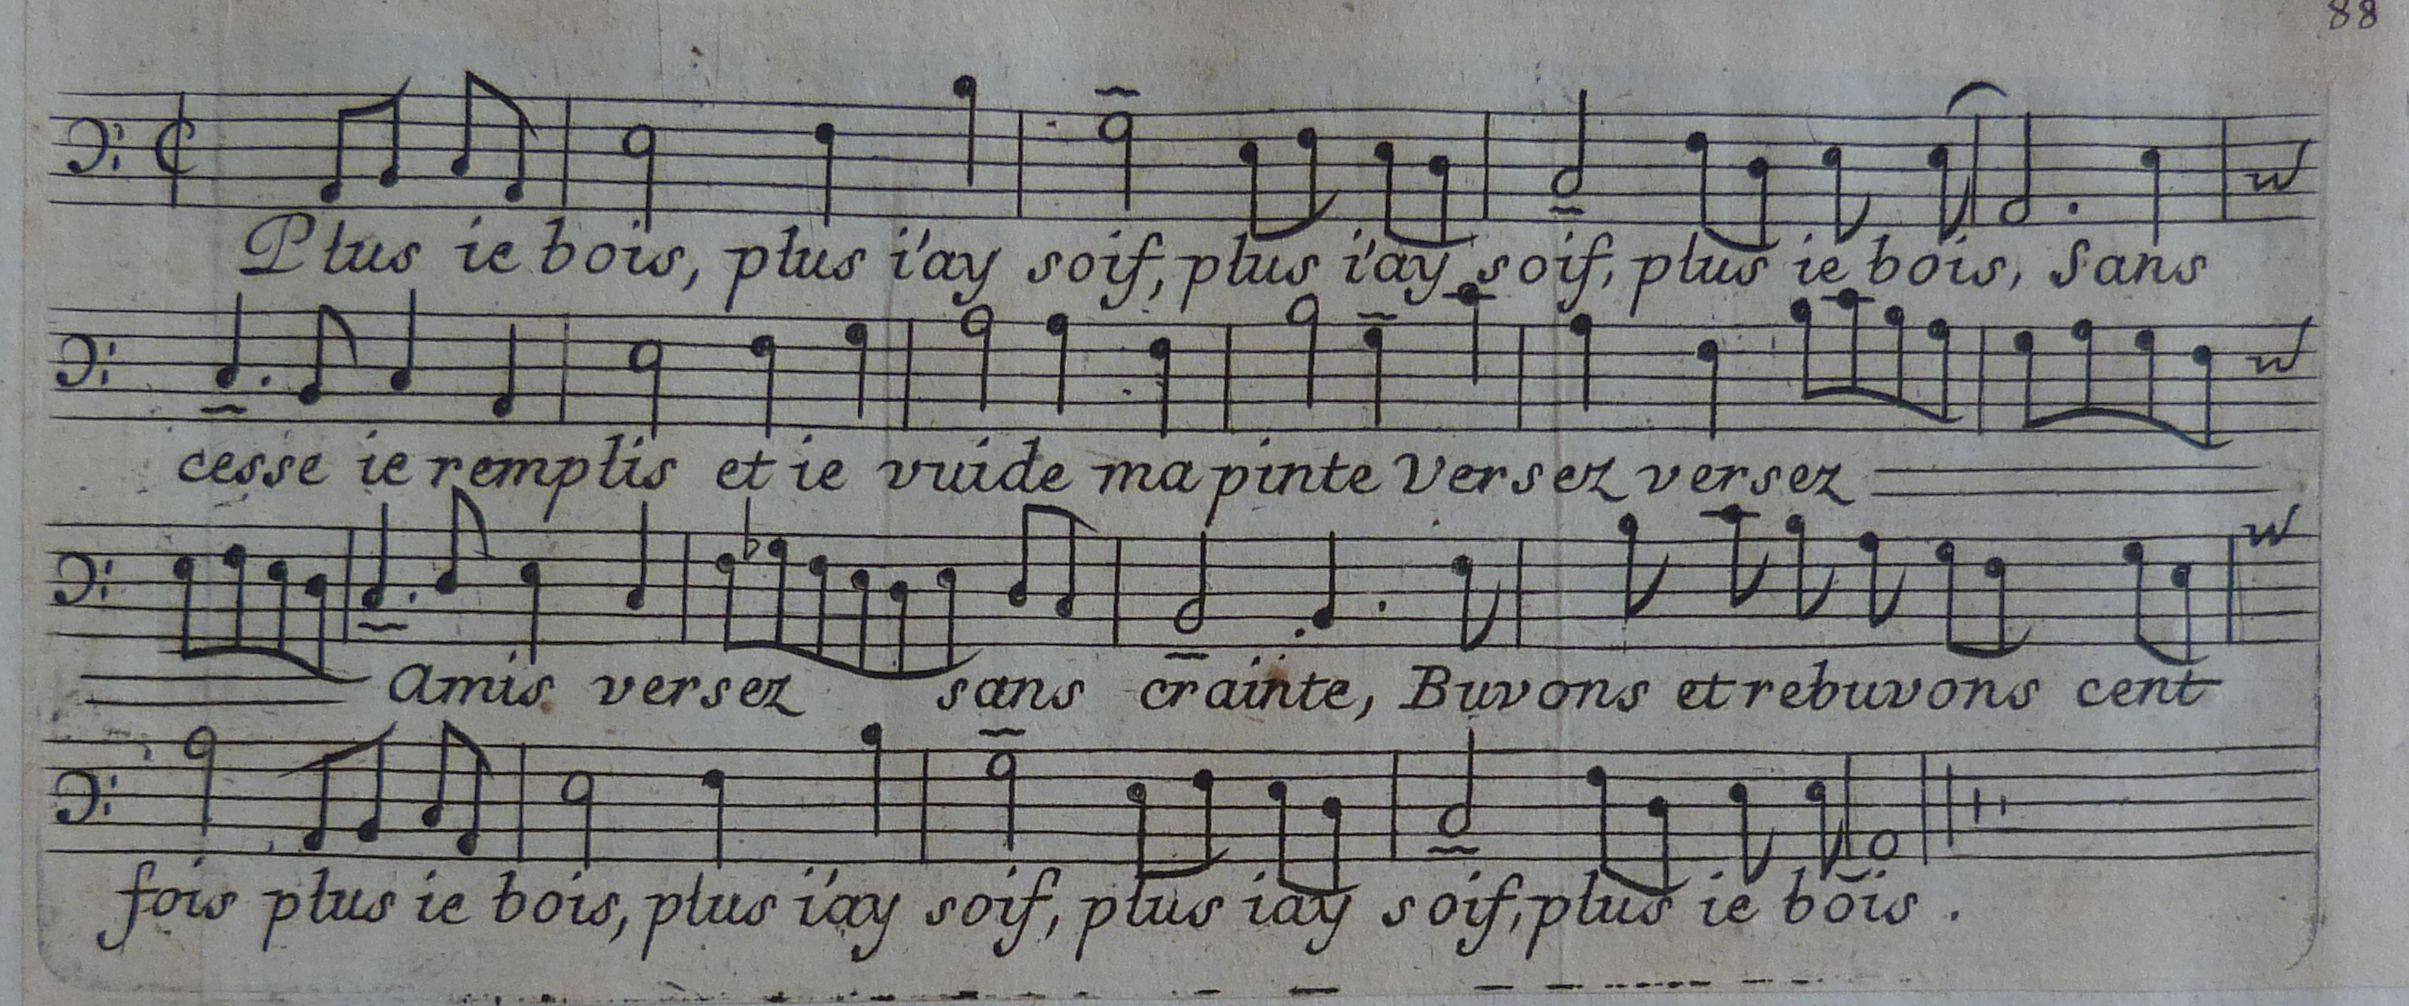 88
Plus ie bois, plus i'ay soif, plus i'ay soif, plus ie bois, Sans
cesse ie remplis et ie vuide ma pinte Versez versez
amis versez sans crainte, Buvons et rebuvons cent
fois plus ie bois, plus i'ay soif, plus iay soif, plus ie bois.